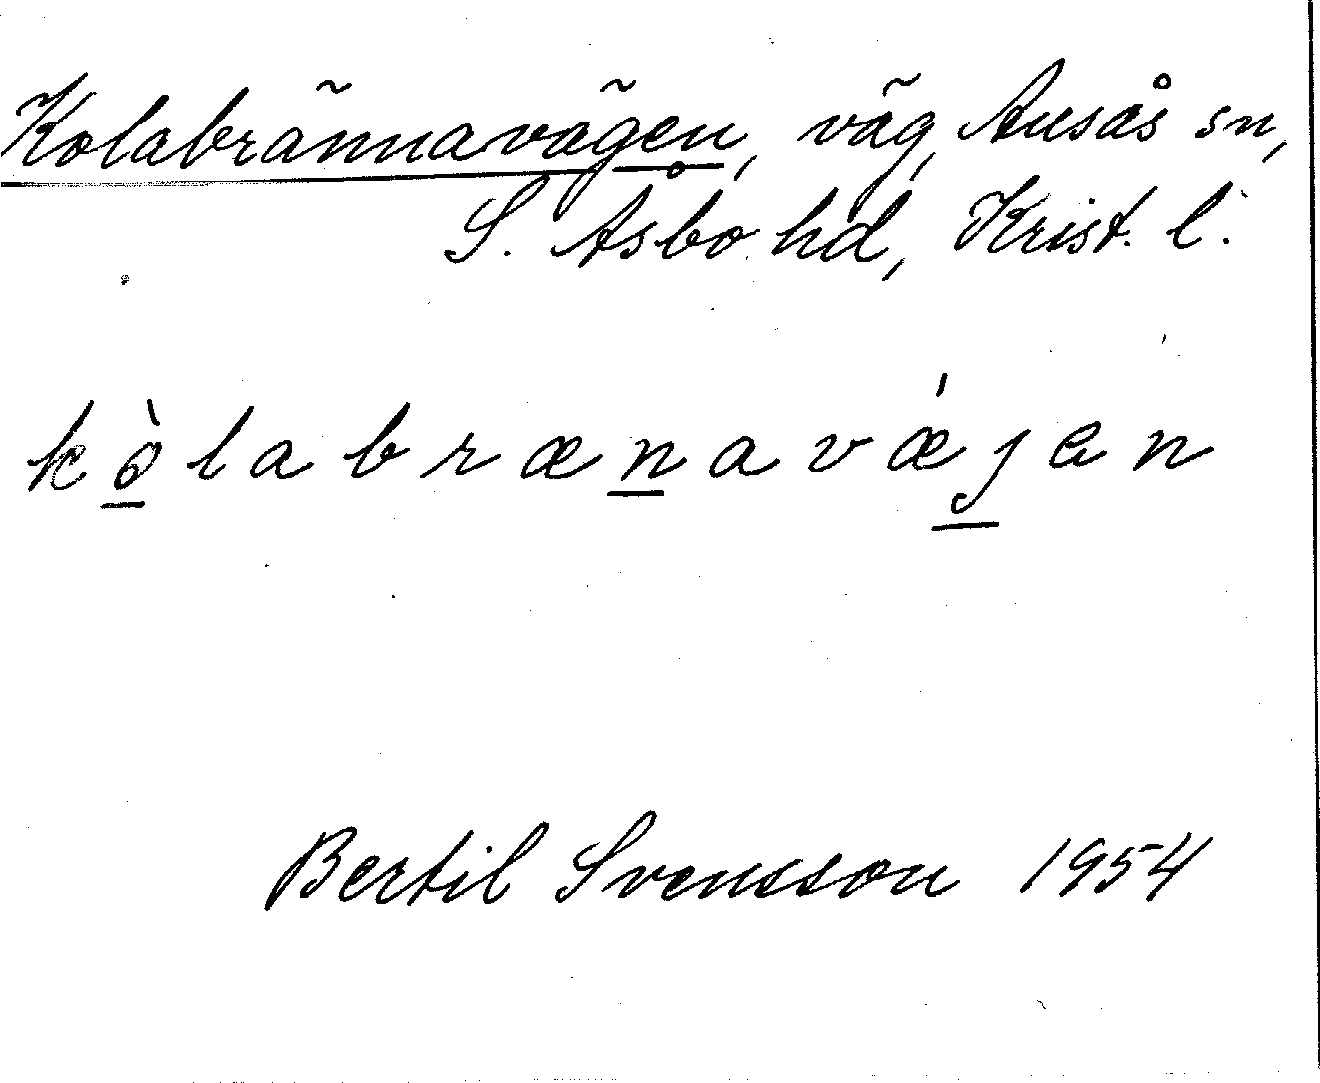 Kolabrännavägen, väg, Ausås sn,
S. Åsbo hd, Krist. l.
kòlabrænavǽjen
Bertil Svensson 1954